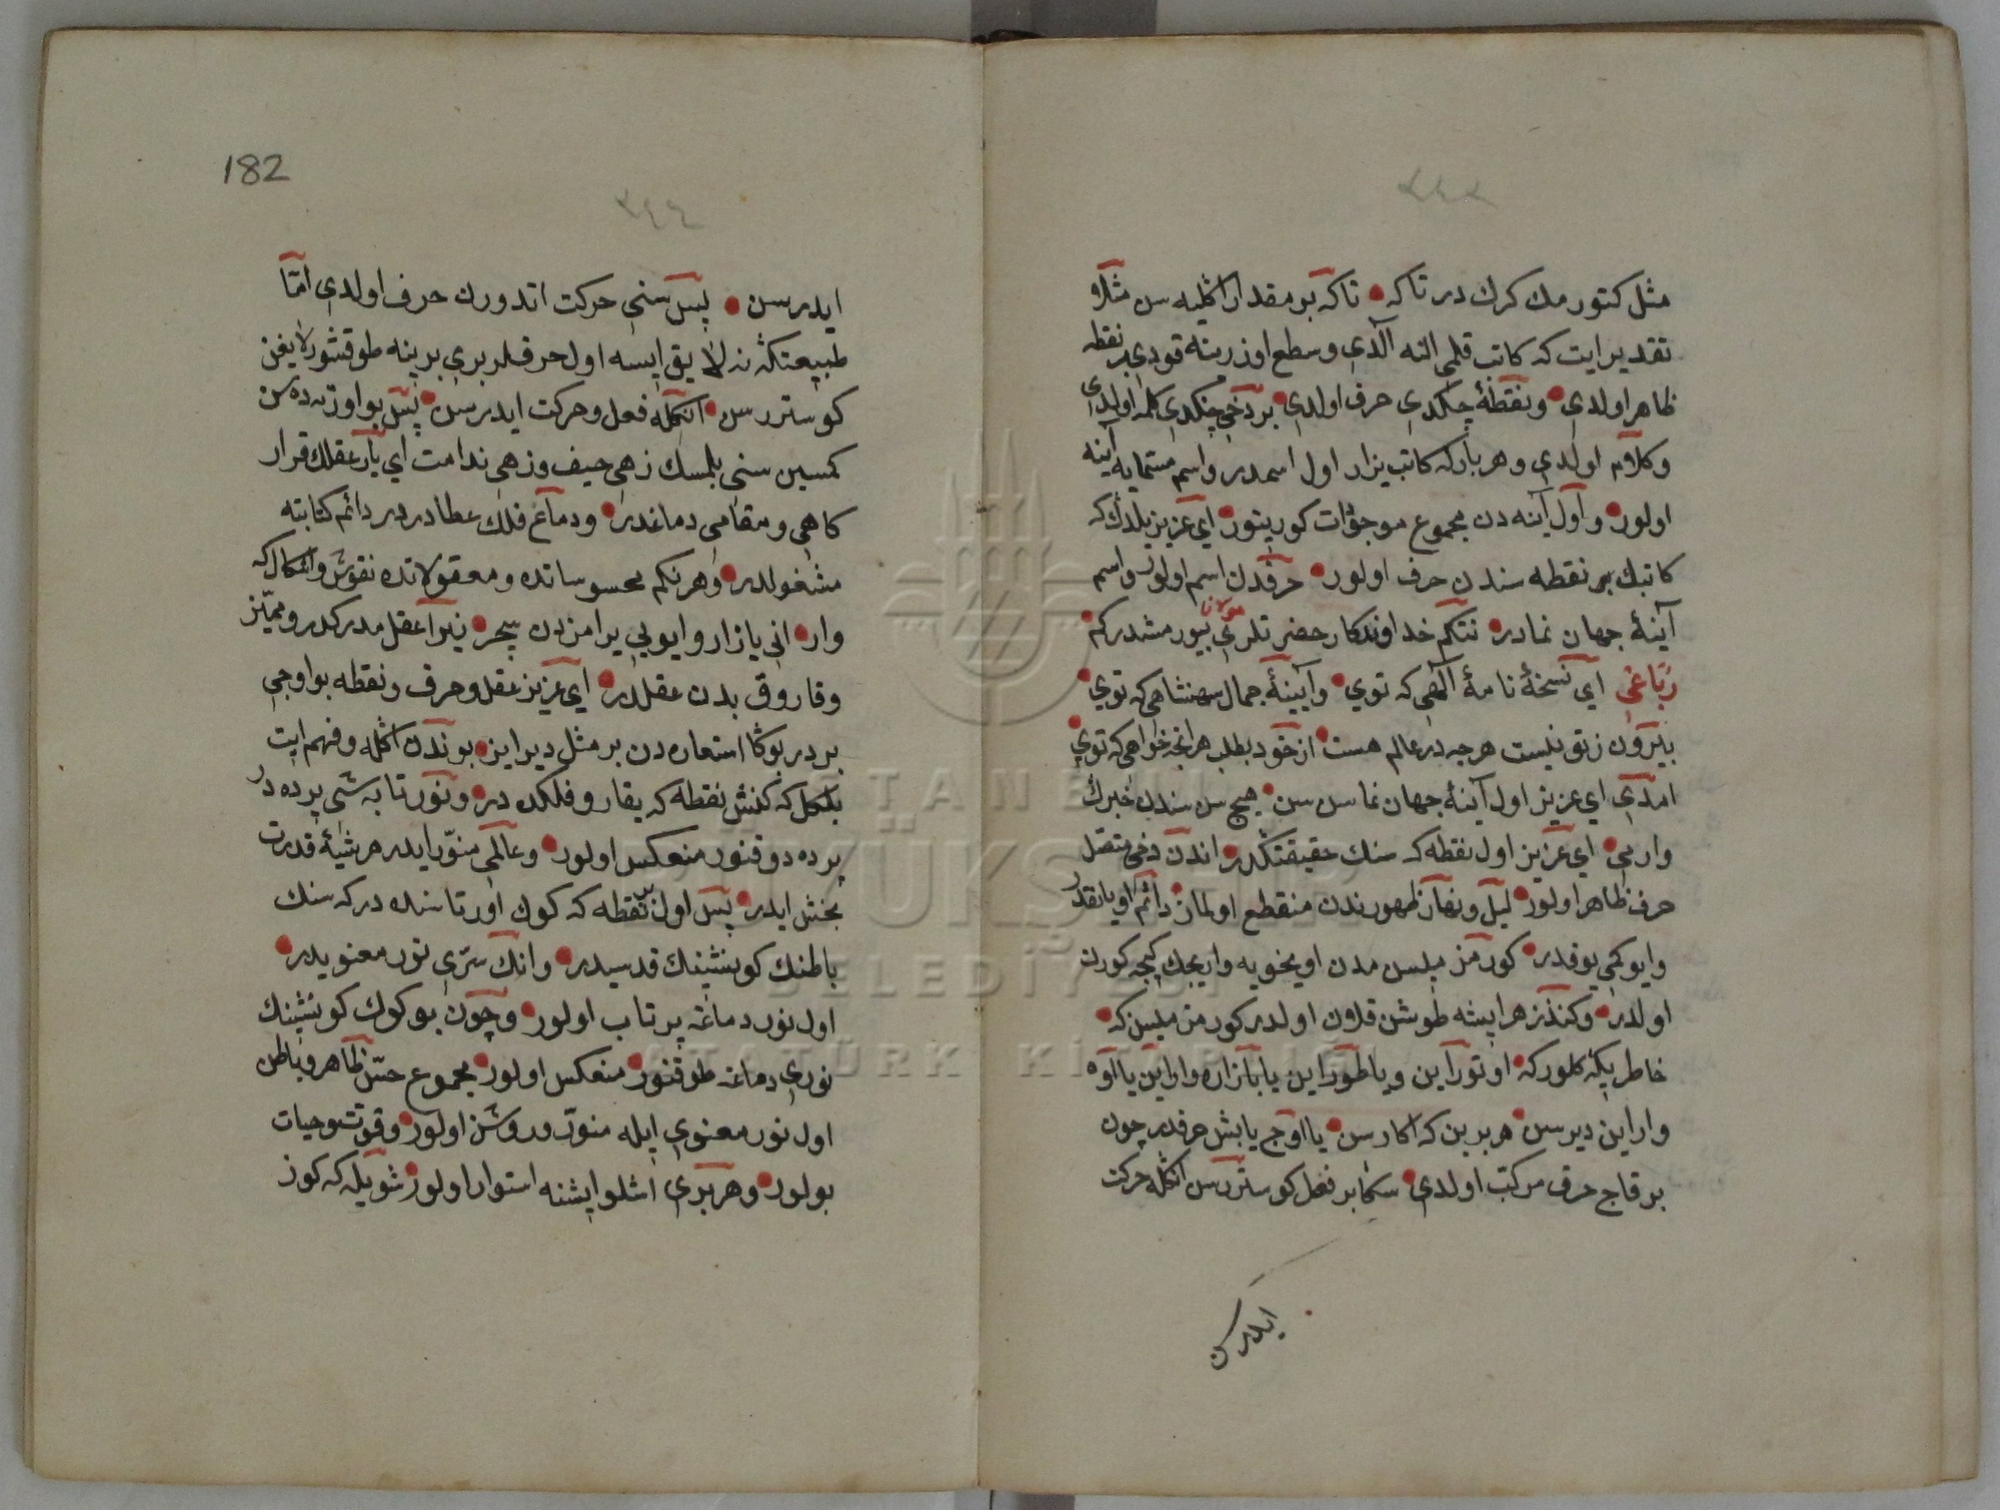 مثل كتورمك كرك در تا كه • تا كه بو مقدار اكليه سن مثلا
تقدير ايت كه كاتب قلمى النه آلدى و سطح اوزرينه قودى بر نقطه
ظاهر اولدى • و نقطهٔ چكدى حرف اولدى • بر دخى چكدى كلمه اولدى
و كلام اولدى و هر بار كه كاتب يزار اول اسمدر و اسم مسمايه آينه
اولور • و اول آينه دن مجموع موجودات كورينور • اى عزيز بلدك كه
كاتبك بر نقطه سندن حرف اولور • حرفدن اسم اولور و اسم
آينهٔ جهان نمادر • نتكم خداوندكار حضرتلرى مولانا بيورمشدركم •
رباعى اى نسخهٔ نامهٔ الهى كه توى • و آيينهٔ جمال شهنشاهى كه توى •
بيرون ز تو نيست هرچه در عالم هست • از خود بطلب هر انچه خواهى كه توى •
امدى اى عزيز اول آينهٔ جهان نما سن سن • هيچ سن سندن خبرك
وارمى • اى عزيز اول نقطه كه سنك حقيقتكدر • اندن دخى متصل
حرف ظاهر اولور • ليل و نهار ظهورندن منقطع اولماز • دائم اويانقدر
و ايوكمى يوقدر • كورمزميسن مدن اويخويه وايجك كيجه كورن
اولدر • و كندز هر ايشه طوشن قلاون اولدر كورمزميسن كه •
خاطريكه كلور كه • اوتوراين و يا طوراين يا بازاره واراين يا اوه
واراين ديرسن • هر برين كه اكارسن • يا اوچ يا بش حرفدر چون
بر قاچ حرف مركب اولدى • سكا بر فعل كوستررسن انكله حركت
ايدرسن
182
٢٤٤
ايدرسن • پس سنى حركت اتدورن حرف اولدى اما
طبيعتكه نه لايق ايسه اول حرفلر برى برينه طوقشور لايغين
كوستررسن • انكله فعل و حركت ايدرسن • پس بو اوزنده سن
كمسين سنى بلمسك زهى حيف و زهى ندامت اى يار عقلك قرار
كاهى و مقامى دماغدر • و دماغ فلك عطاردر در دائم كتابته
مشغولدر • و هر نكم محسوساتده و معقولاتده نقوش و اشكال كه
وار • انى يازار و ايوبى يرامزدن سچر • زيرا عقل مدركدر و مميز
و فاروق بدن عقلدر • اى عزيز عقل و حرف و نقطه بو اوچى
بردر بوكا استعاره دن بر مثل ديراين • بوندن اكله و فهم ايت
بلكل كه كنش نقطه كه يقارو فلكده در • و نور تابشى پرده در
پرده دوقنور منعكس اولور • و عالمى منور ايدر هر شيئه قدرت
بخش ايدر • پس اول نقطه كه كوك اورتاسنده در كه سنك
باطنك كونشينك قدسيدر • و انك سرى نور معنويدر •
اول نور دماغه پرتاب اولور • و چون بو كوك كونشينك
نورى دماغه طوقنور • منعكس اولور • مجموع حس ظاهر و باطن
اول نور معنوى ايله منور و روشن اولور • و قوت و حيات
بولور • و هر برى اشلو ايشنه استوار اولور • شويله كه كوز